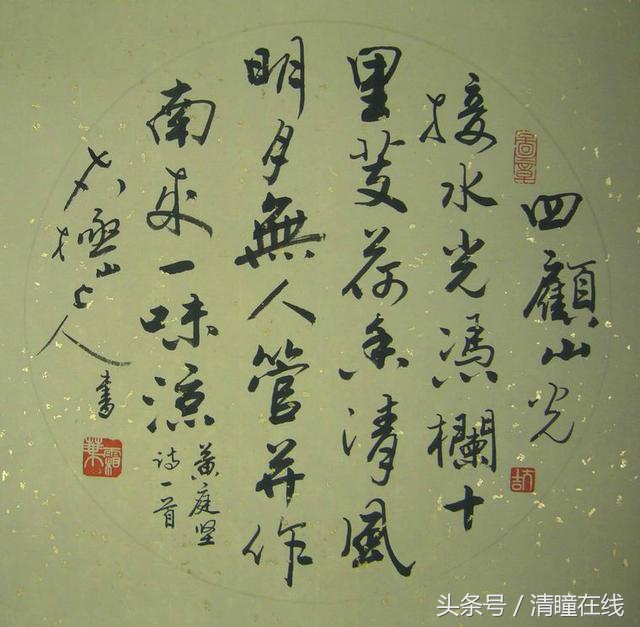 四顧山光
接水光憑欄十
里芰荷香清風
明月無人管并作
南来一味涼
黄庭坚
诗一首
山上人書
霜葉
头条号 / 清瞳在线